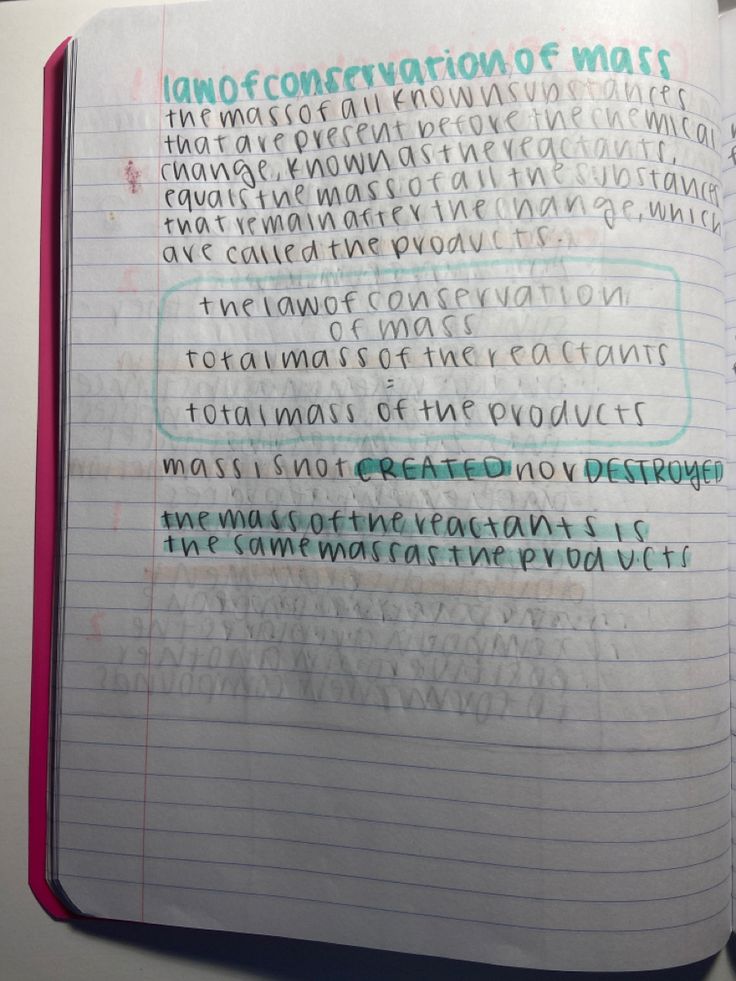 law of conservation of mass
the mass of all known substances
that are present before the chemical
change, known as the reactants,
equals the mass of all the substances
that remain after the change, which
are called the products.
the law of conservation
of mass
total mass of the reactants
=
total mass of the products
mass is not CREATED nor DESTROYED
the mass of the reactants is
the same mass as the products